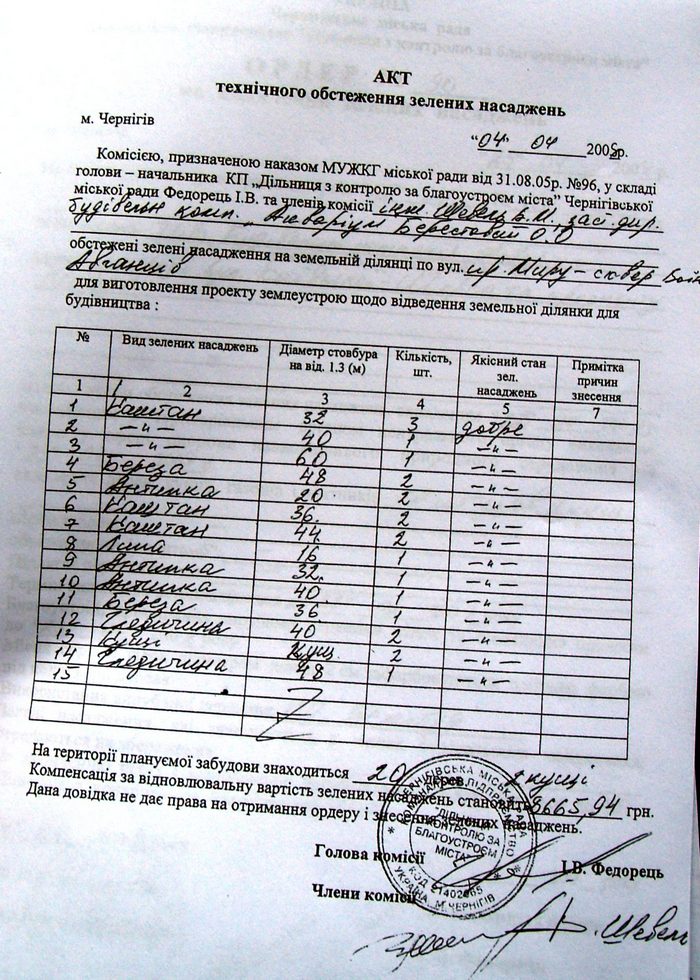 АКТ
технічного обстеження зелених насаджень
м. Чернігів
“04” 04 2005р.
Комісією, призначеною наказом МУЖКГ міської ради від 31.08.05р. №96, у складі
голови – начальника КП „Дільниця з контролю за благоустроєм міста” Чернігівської
міської ради Федорець І.В. та членів комісії інж. Шевель В.М., заст. дир.
будівельн комп. „Акваріум Берестовий О.О
обстежені зелені насадження на земельній ділянці по вул. пр. Миру – сквер Воїн
Авганців
для виготовлення проекту землеустрою щодо відведення земельної ділянки для
будівництва :
№ Вид зелених насаджень Діаметр стовбура на від. 1.3 (м) Кількість, шт. Якісний стан зел. насаджень Примітка причин знесення
1 2 3 4 5 7
1 Каштан 32 3 добре
2 —"— 40 1 —"—
3 —"— 60 1 —"—
4 Береза 48 2 —"—
5 Антипка 20 2 —"—
6 Каштан 36. 2 —"—
7 Каштан 44 2 —"—
8 Липа 16 1 —"—
9 Антипка 32. 1 —"—
10 Антипка 40. 1 —"—
11 Береза 36 1 —"—
12 Гледичина 40 2 —"—
13 Кущі Кущ. 2 —"—
14 Гледичина 48 1 —"—
15
На території планумої забудови знаходиться 20 дерев, кущі
Компенсація за відновлювальну вартість зелених насаджень становить 8665,94 грн.
Дана довідка не дає права на отримання ордеру і знесення зелених насаджень.
Голова комісії І.В. Федорець
Члени комісії
В. Шевель
ЧЕРНІГІВСЬКА МІСЬКА РАДА
КОМУНАЛЬНЕ ПІДПРИЄМСТВО
"ДІЛЬНИЦЯ
З КОНТРОЛЮ ЗА
БЛАГОУСТРОЄМ
МІСТА"
КОД 21402065
УКРАЇНА М.ЧЕРНІГІВ